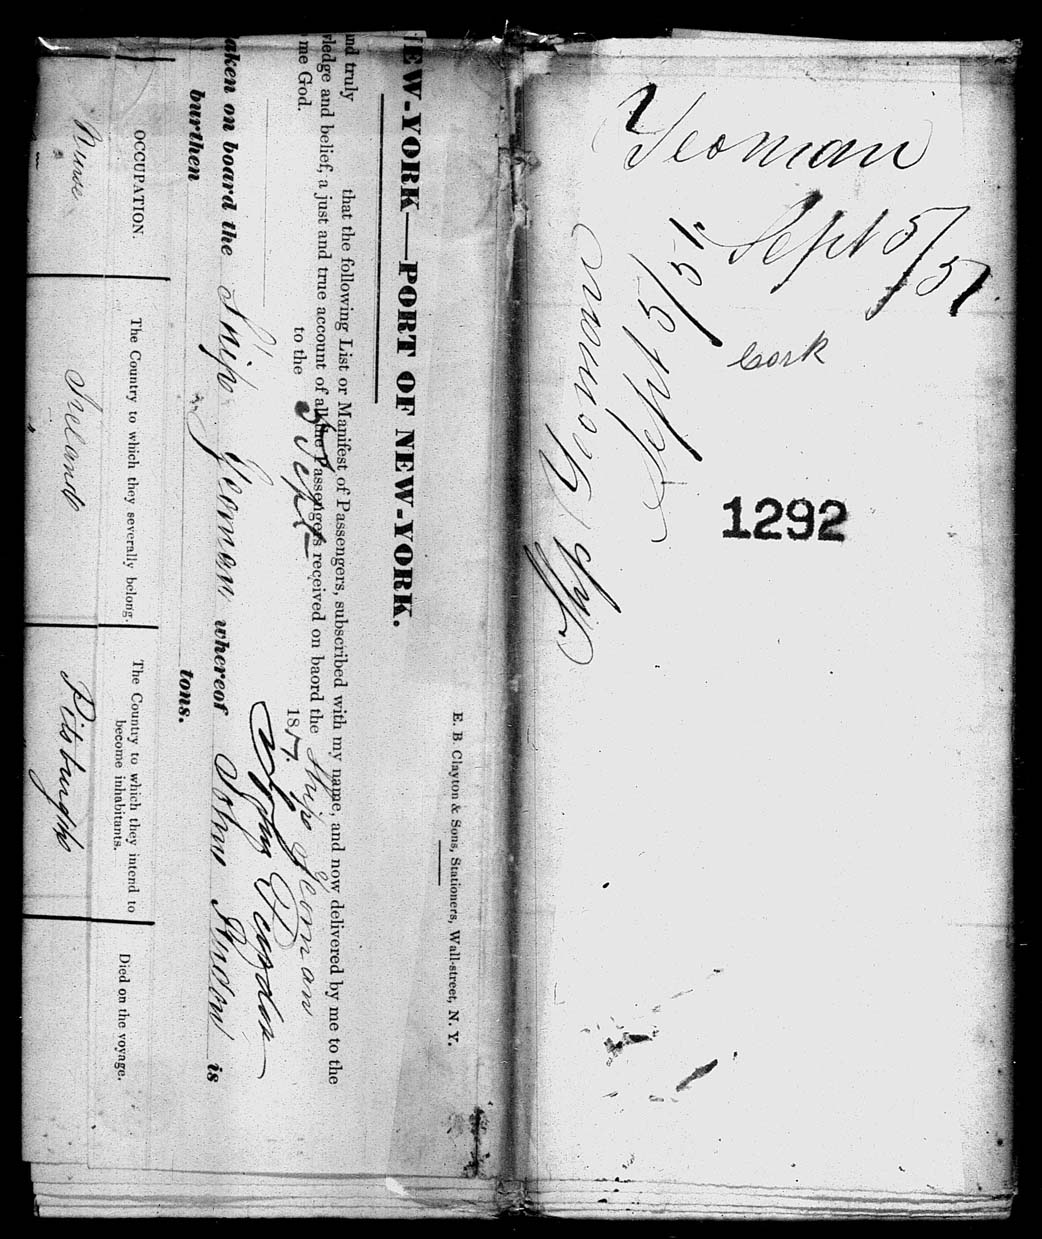 E. B Clayton & Sons, Stationers, Wall-street, N. Y.
EW-YORK—PORT OF NEW-YORK.
nd truly that the following List or Manifest of Passengers, subscribed with my name, and now delivered by me to the
ledge and belief, a just and true account of all the Passengers received on baord the Ship Yeoman
me God.
to the 5 Sept 1851.
John
aken on board the Ship Yeoman whereof John is
burthen tons.
OCCUPATION.
The Country to which they severally belong.
The Country to which they intend to
become inhabitants.
Died on the voyage.
Nurse
Ireland
Pitsburgth
Yeoman
Sept 5/51
Cork
1292
Ship Yeoman
Sept 5/51